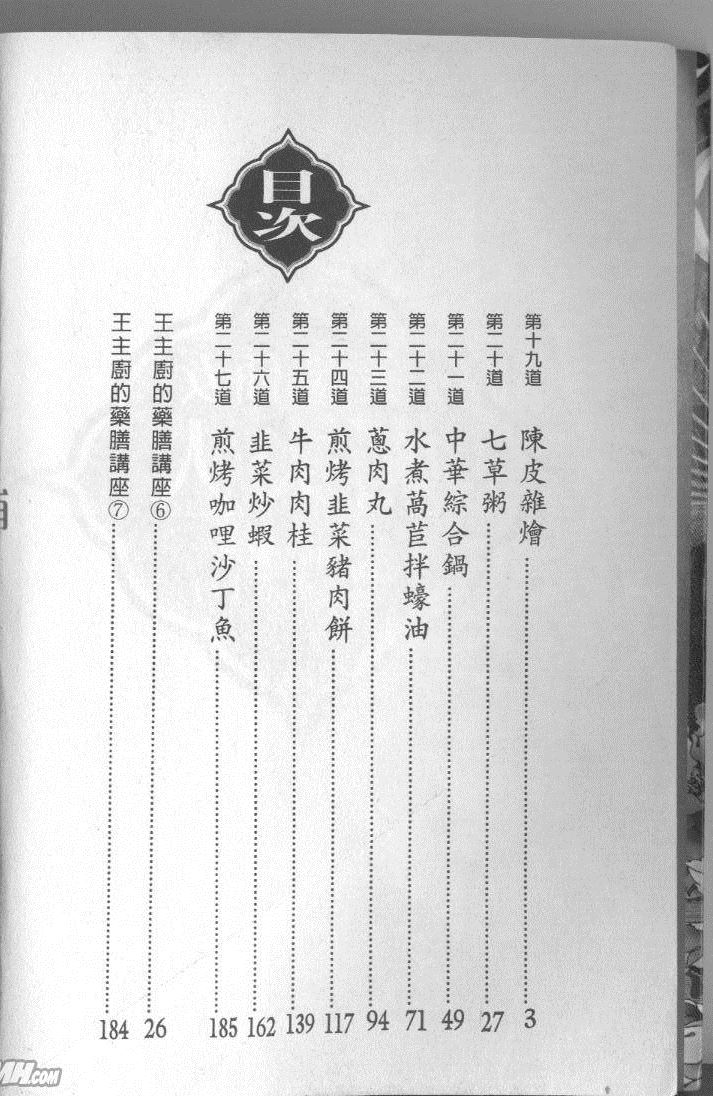 目次
第十九道 陳皮雜燴 3
第二十道 七草粥 27
第二十一道 中華綜合鍋 49
第二十二道 水煮萵苣拌蠔油 71
第二十三道 蔥肉丸 94
第二十四道 煎烤韭菜豬肉餅 117
第二十五道 牛肉肉桂 139
第二十六道 韭菜炒蝦 162
第二十七道 煎烤咖哩沙丁魚 185
王主廚的藥膳講座⑥ 26
王主廚的藥膳講座⑦ 184
MH.COM